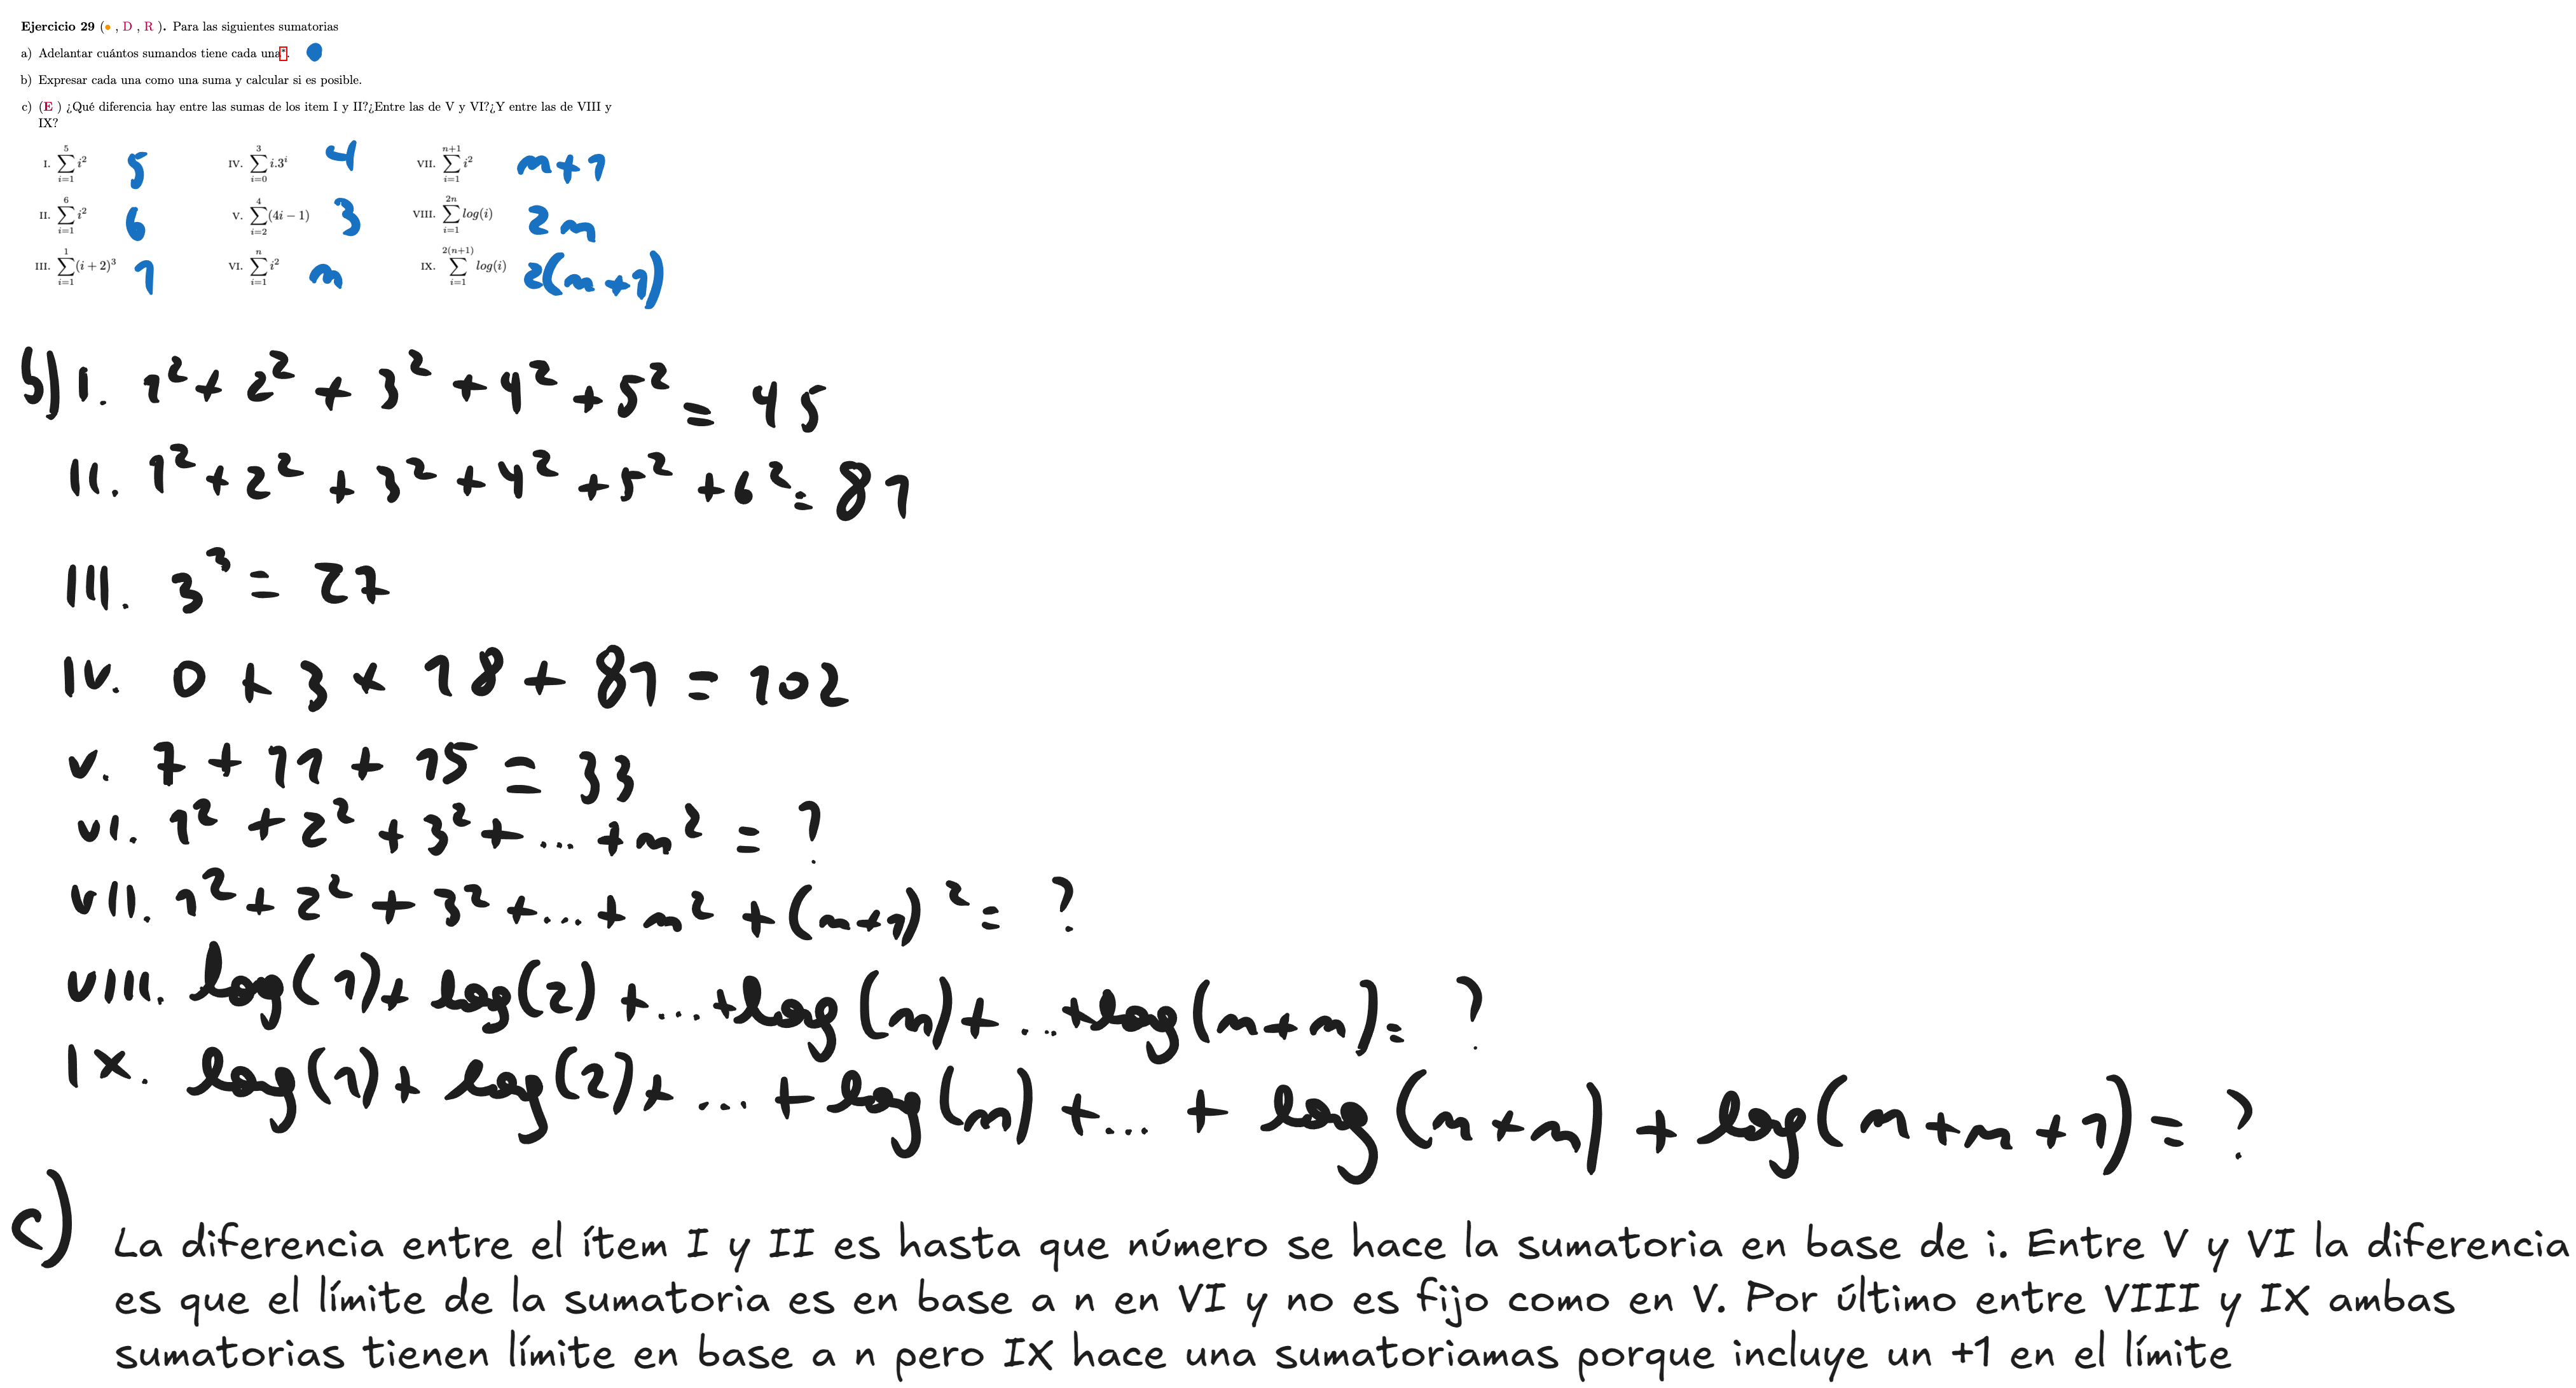 Ejercicio 29 (• , D , R ). Para las siguientes sumatorias
a) Adelantar cuántos sumandos tiene cada una*.
b) Expresar cada una como una suma y calcular si es posible.
c) (E ) ¿Qué diferencia hay entre las sumas de los item I y II?¿Entre las de V y VI?¿Y entre las de VIII y
IX?
I. \sum_{i=1}^{5} i^2 5 IV. \sum_{i=0}^{3} i.3^i 4 VII. \sum_{i=1}^{n+1} i^2 n+1
II. \sum_{i=1}^{6} i^2 6 V. \sum_{i=2}^{4} (4i − 1) 3 VIII. \sum_{i=1}^{2n} log(i) 2n
III. \sum_{i=1}^{1} (i + 2)^3 1 VI. \sum_{i=1}^{n} i^2 n IX. \sum_{i=1}^{2(n+1)} log(i) 2(n+1)
b) I. 1² + 2² + 3² + 4² + 5² = 45
II. 1² + 2² + 3² + 4² + 5² + 6² = 81
III. 3³ = 27
IV. 0 + 3 + 18 + 81 = 102
V. 7 + 11 + 15 = 33
VI. 1² + 2² + 3² + ... + n² = ?
VII. 1² + 2² + 3² + ... + n² + (n+1)² = ?
VIII. log(1) + log(2) + ... + log(n) + ... + log(n+n) = ?
IX. log(1) + log(2) + ... + log(n) + ... + log(n+n) + log(n+n+1) = ?
c) La diferencia entre el ítem I y II es hasta que número se hace la sumatoria en base de i. Entre V y VI la diferencia
es que el límite de la sumatoria es en base a n en VI y no es fijo como en V. Por último entre VIII y IX ambas
sumatorias tienen límite en base a n pero IX hace una sumatoriamas porque incluye un +1 en el límite